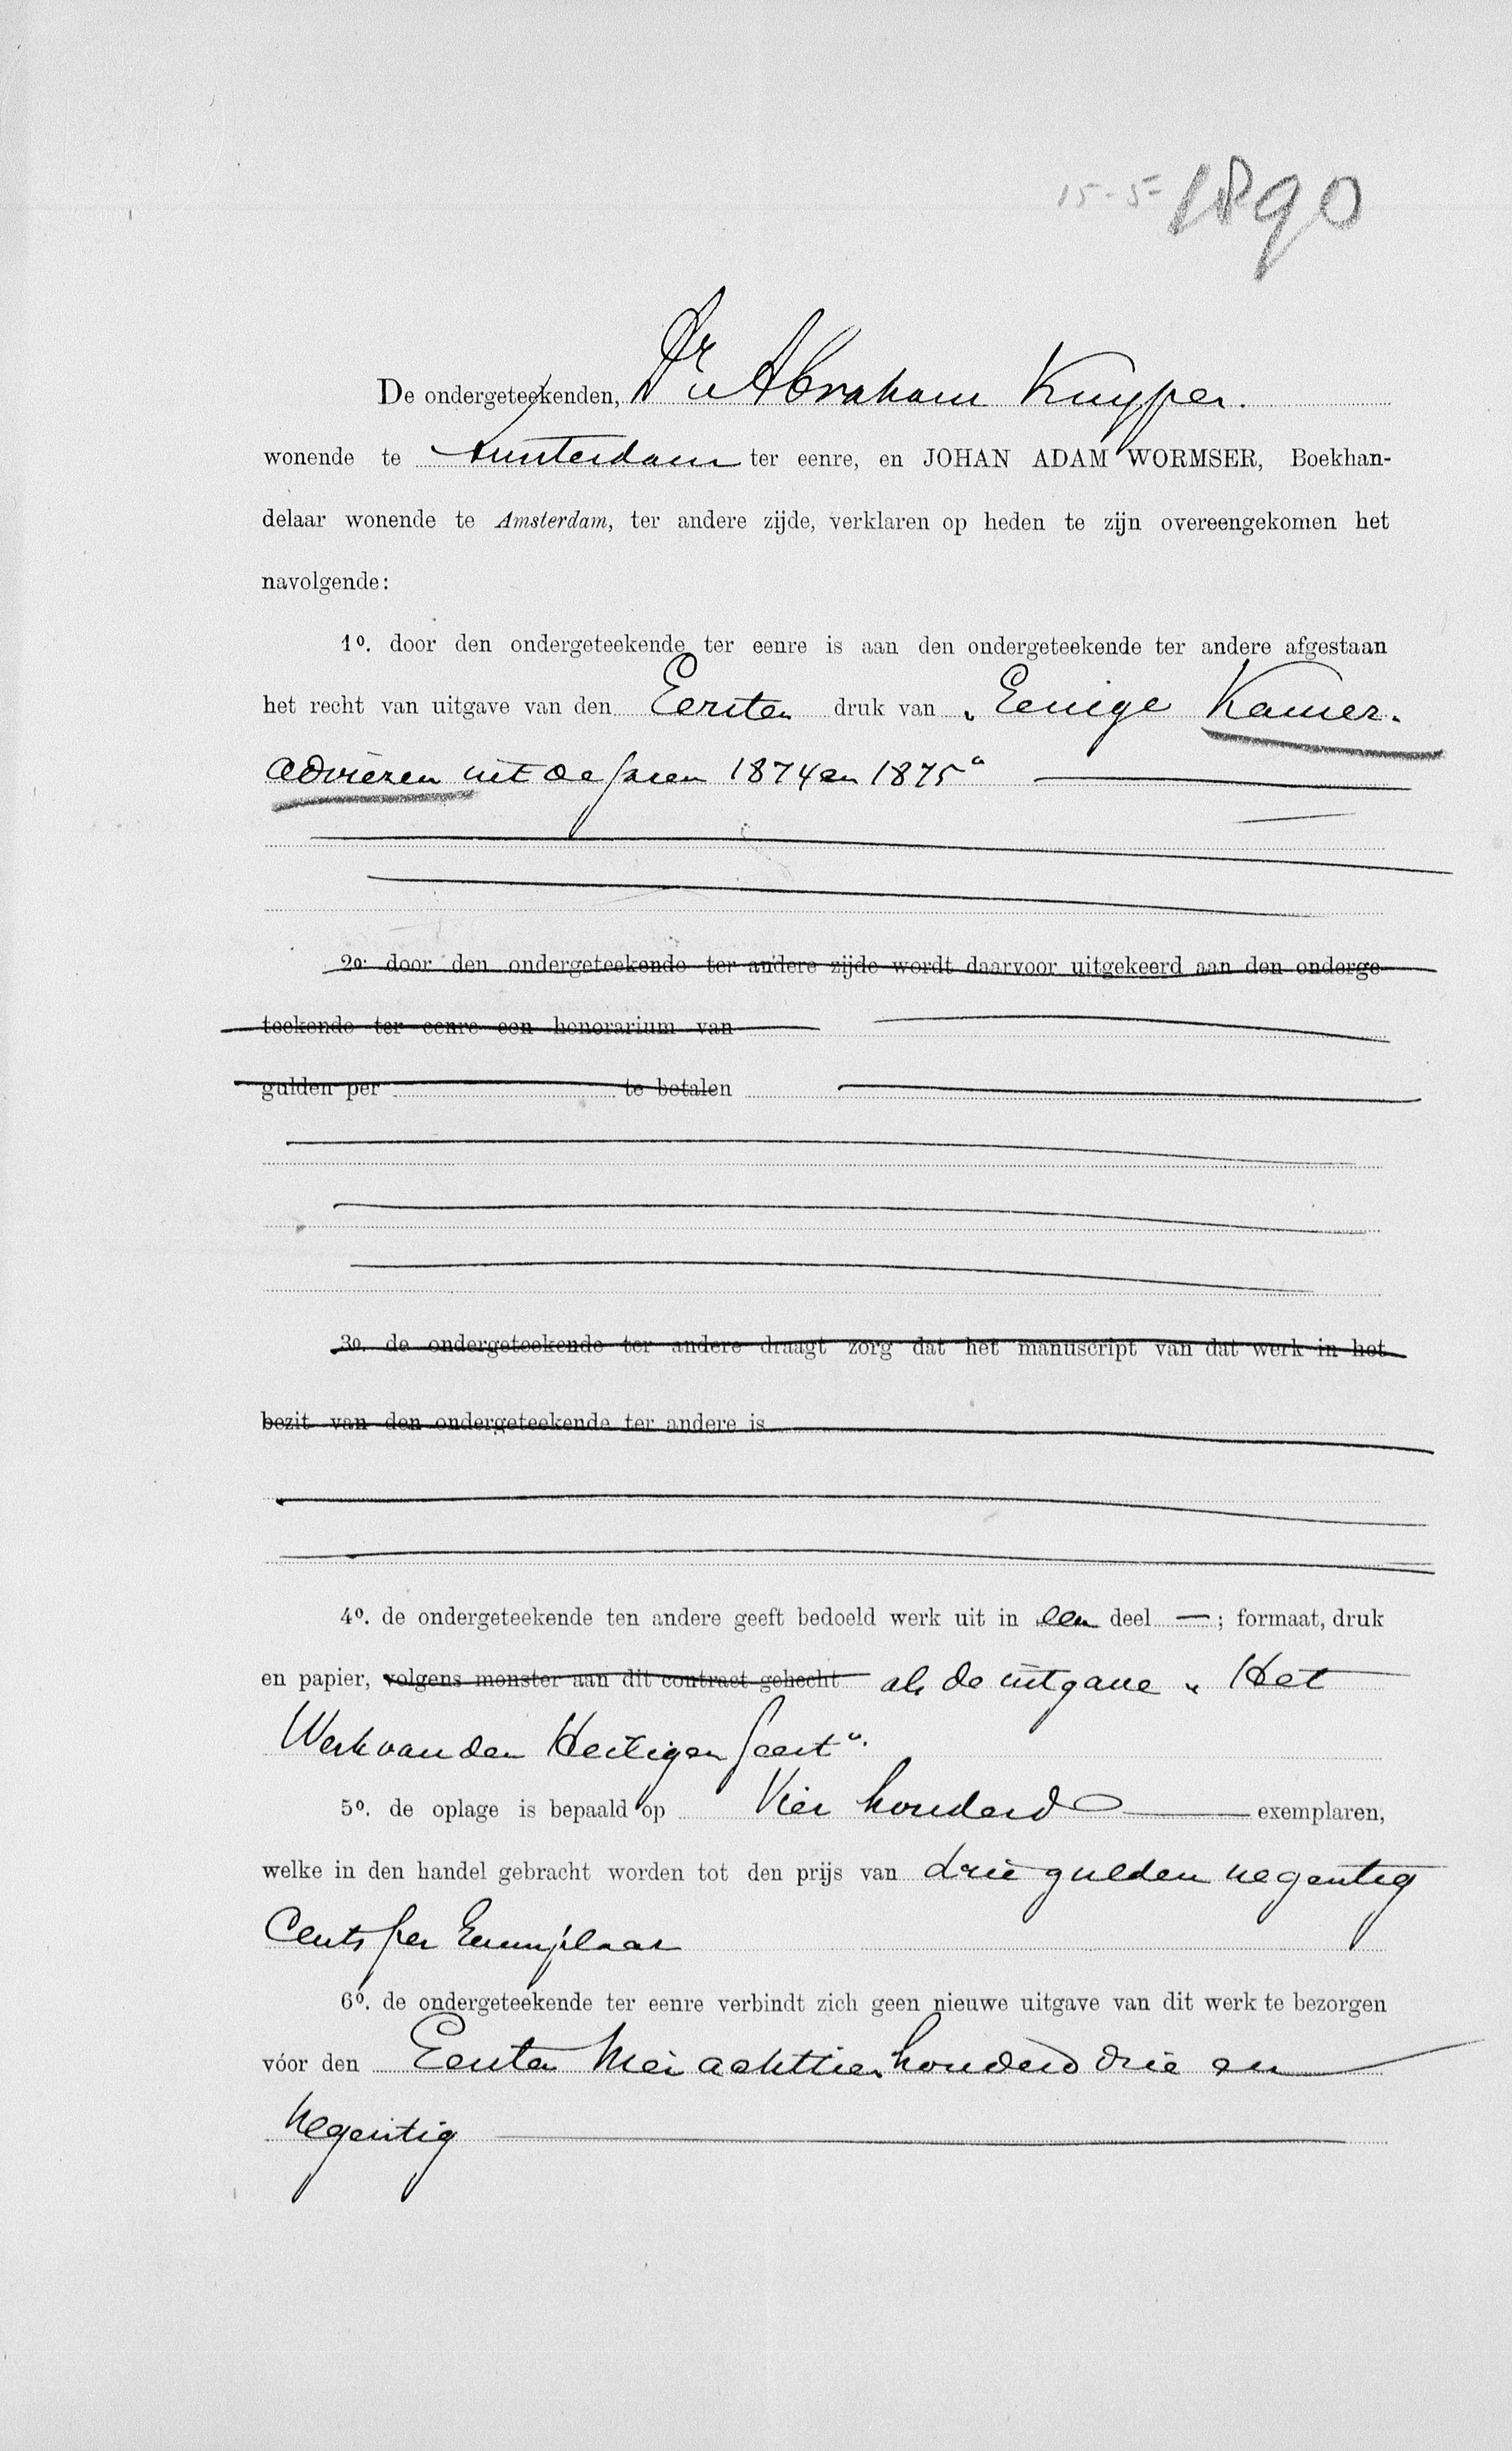 15-5-1890
De ondergeteekenden, Dr Abraham Kuyper.
wonende te Amsterdam ter eenre, en JOHAN ADAM WORMSER, Boekhan-
delaar wonende te Amsterdam, ter andere zijde, verklaren op heden te zijn overeengekomen het
navolgende:
1o. door den ondergeteekende ter eenre is aan den ondergeteekende ter andere afgestaan
het recht van uitgave van den Eersten druk van „Eenige Kamer-
adviezen uit de jaren 1874 en 1875"
2o. door den ondergeteekende ter andere zijde wordt daarvoor uitgekeerd aan den onderge-
teekende ter eenre een honorarium van
gulden per te betalen
3o. de ondergeteekende ter andere draagt zorg dat het manuscript van dat werk in het
bezit van den ondergeteekende ter andere is
4o. de ondergeteekende ten andere geeft bedoeld werk uit in een deel —; formaat, druk
en papier, volgens monster aan dit contract gehecht als de uitgave „Het
Werk van den Heiligen Geest".
5o. de oplage is bepaald op Vier honderd exemplaren,
welke in den handel gebracht worden tot den prijs van drie gulden negentig
Cents per Exemplaar
6o. de ondergeteekende ter eenre verbindt zich geen nieuwe uitgave van dit werk te bezorgen
vóor den Eersten Mei achttienhonderd drie en
Negentig